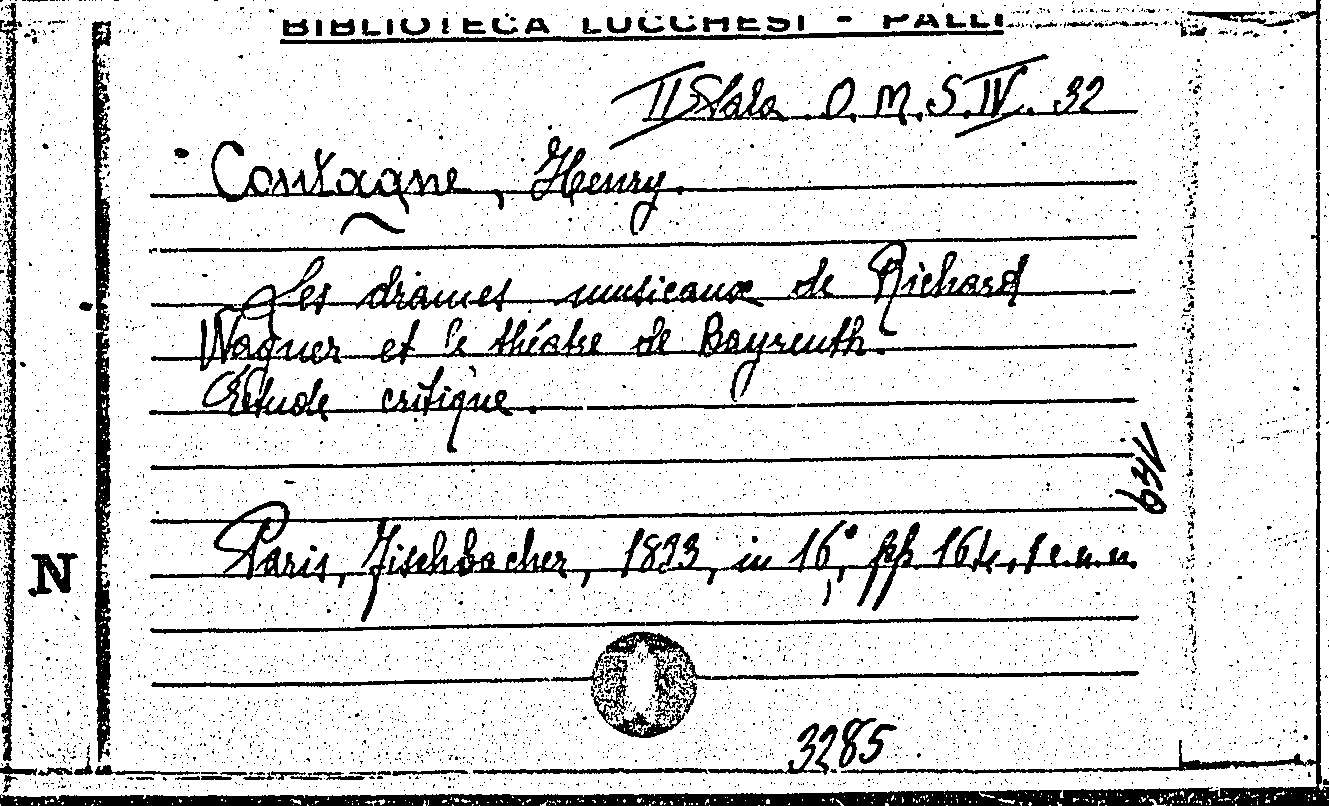 BIBLIOTECA LUCCHESI - PALLI
II Sala O.M.S.IV. 32
Coutagne, Henry.
Les drames musicaux de Richard
Wagner et le théatre de Bayreuth.
Etude critique.
Paris, Fischbacher, 1833, in 16°, pp. 164, 1 c.n.n.
N
3285